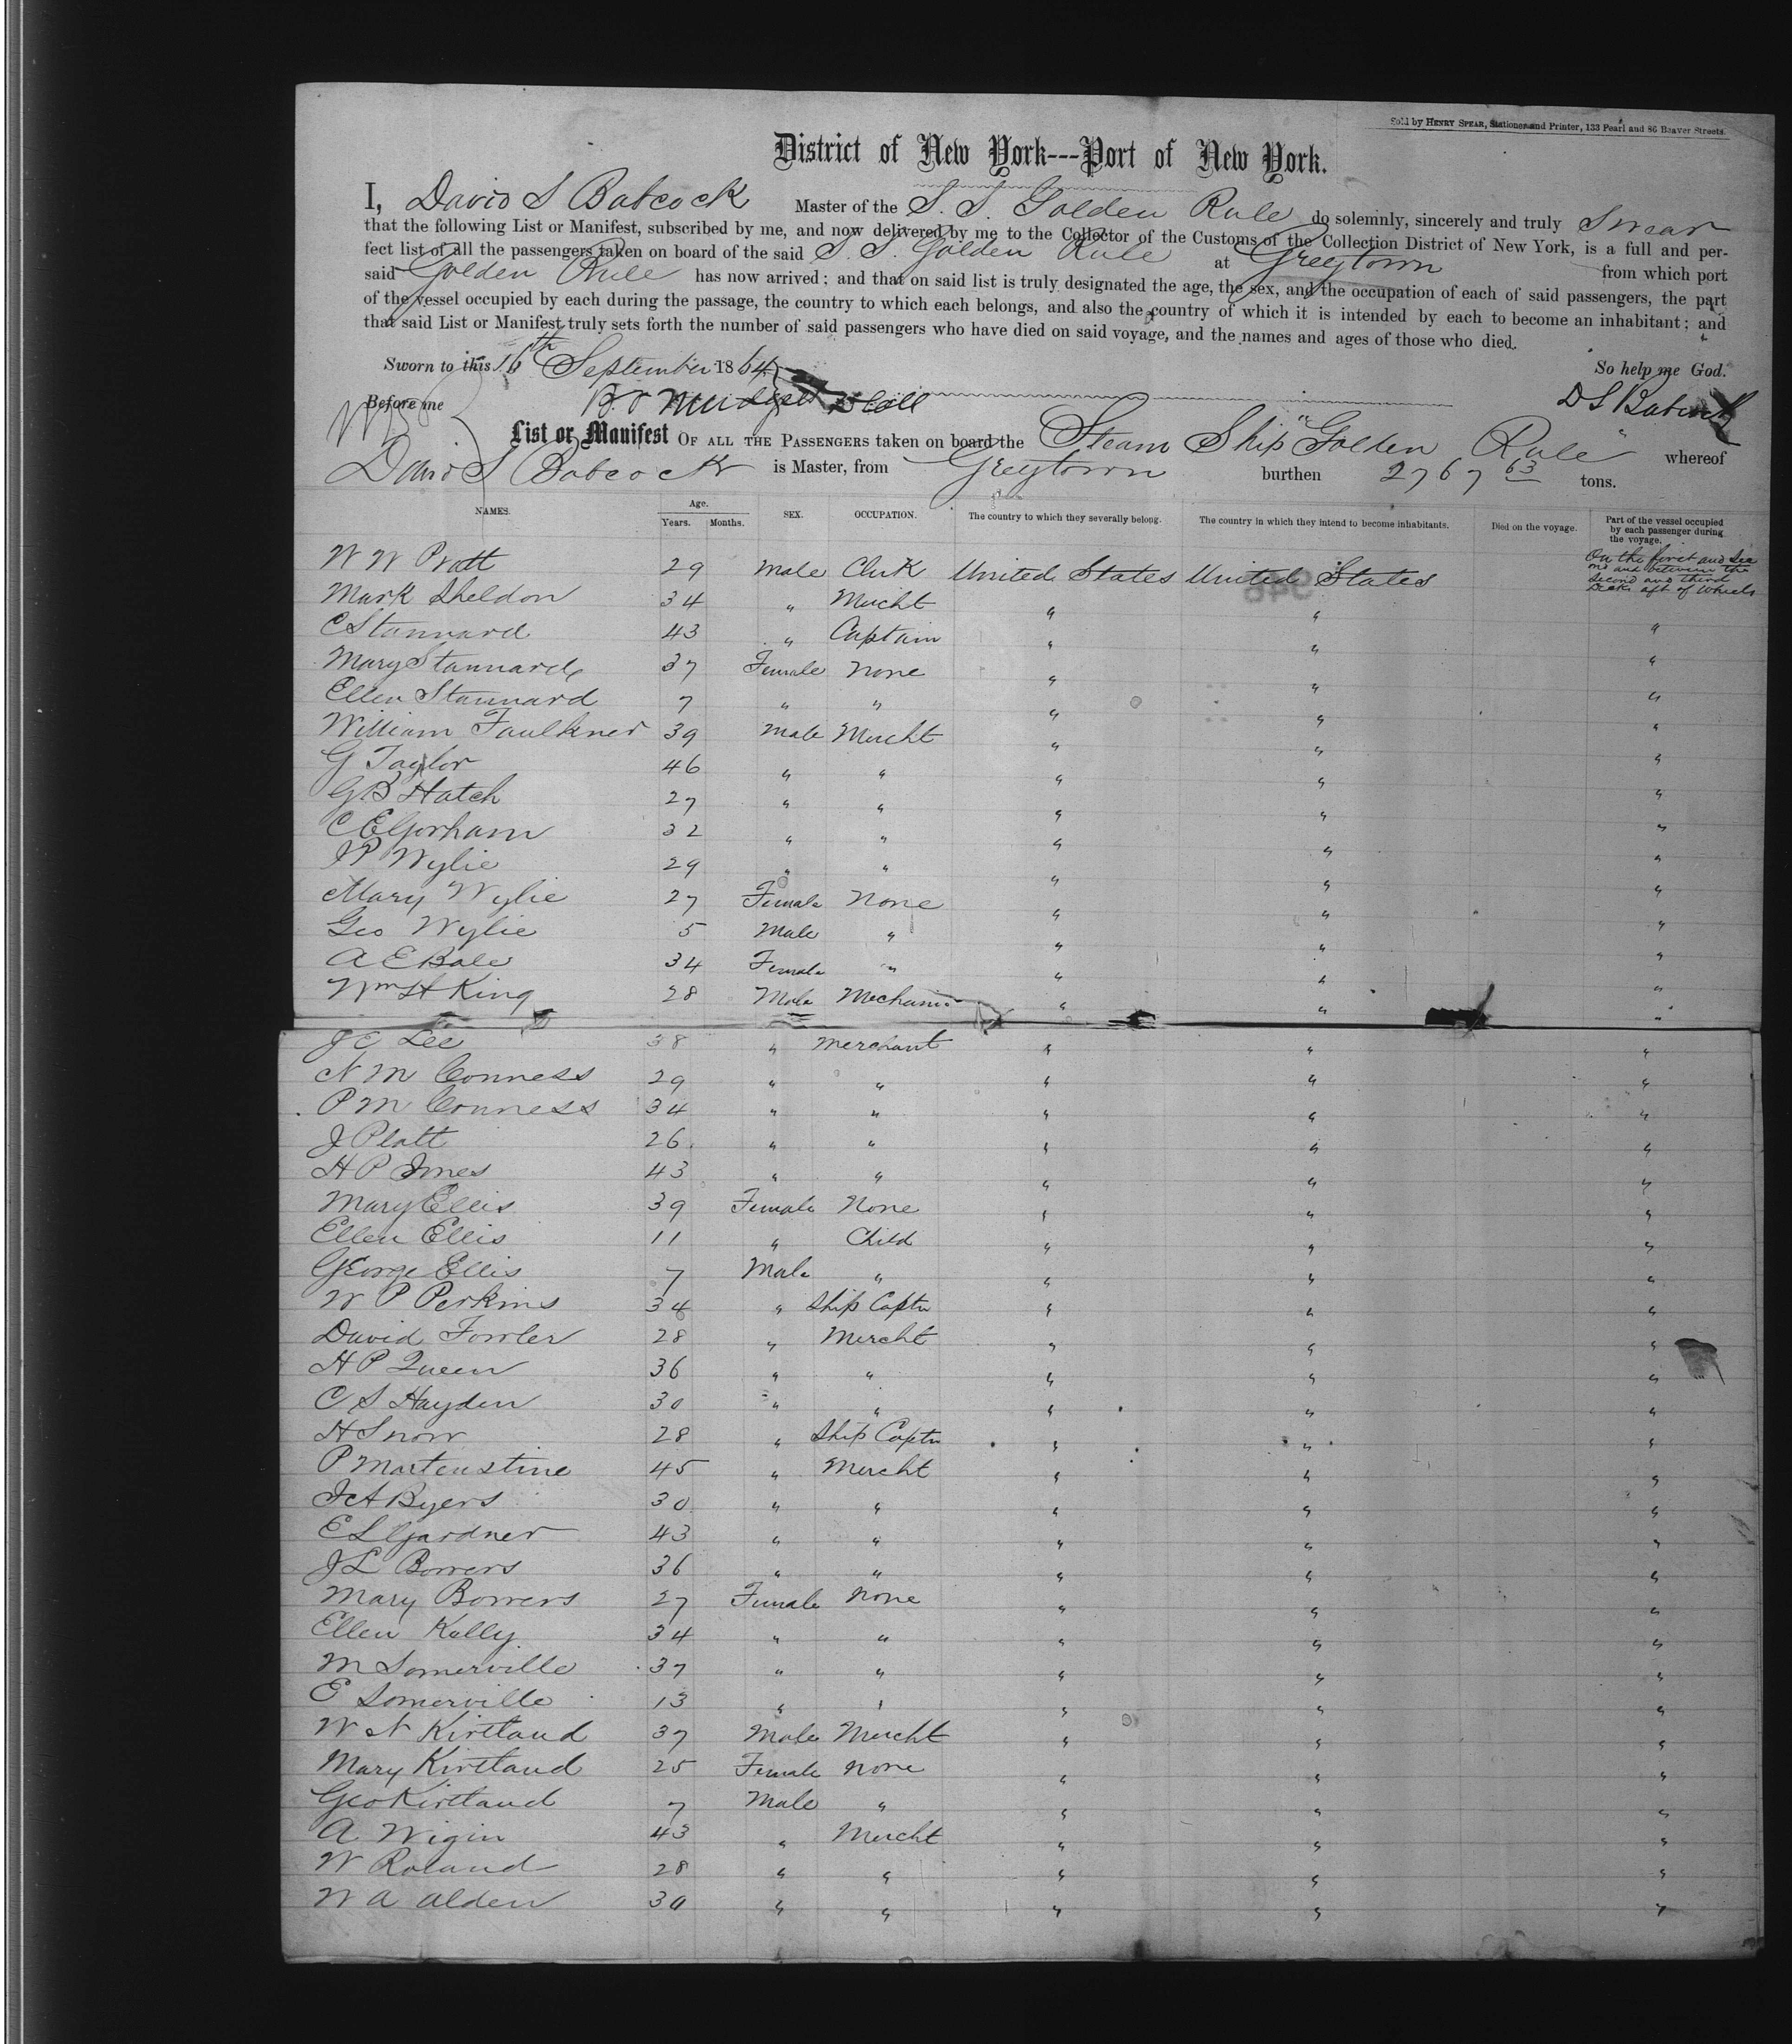 Sold by HENRY SPEAR, Stationer and Printer, 133 Pearl and 86 Beaver Streets.
District of New York---Port of New York.
I, David S Babcock Master of the S. S. Golden Rule do solemnly, sincerely and truly Swear
that the following List or Manifest, subscribed by me, and now delivered by me to the Collector of the Customs of the Collection District of New York, is a full and per-
fect list of all the passengers taken on board of the said S. S. Golden Rule at Greytown from which port
said Golden Rule has now arrived; and that on said list is truly designated the age, the sex, and the occupation of each of said passengers, the part
of the vessel occupied by each during the passage, the country to which each belongs, and also the country of which it is intended by each to become an inhabitant; and
that said List or Manifest truly sets forth the number of said passengers who have died on said voyage, and the names and ages of those who died.
Sworn to this 16th September 1864 So help me God.
Before me D S Babcock
List or Manifest OF ALL THE PASSENGERS taken on board the Steam Ship "Golden Rule" whereof
David S Babcock is Master, from Greytown burthen 2767 63 tons.
NAMES. Age. Years. Months. SEX. OCCUPATION. The country to which they severally belong. The country in which they intend to become inhabitants. Died on the voyage. Part of the vessel occupied by each passenger during the voyage.
W W Pratt 29 Male Clerk United States United States On the first and Sec ond and between the second and third Decks aft of Wheels
Mark Sheldon 34 " Mercht " " "
C Stannard 43 " Captain " " "
Mary Stannard 37 Female None " " "
Ellen Stannard 7 " " " " "
William Faulkner 39 Male Mercht " " "
G Taylor 46 " " " " "
G B Hatch 27 " " " " "
C E Gorham 32 " " " " "
J P Wylie 29 " " " " "
Mary Wylie 27 Female None " " "
Geo Wylie 5 Male " " " "
A E Bale 34 Female " " " "
Wm H King 28 Male Mechanic " " "
J E Lee 38 " Merchant " " "
N M Conness 29 " " " " "
P M Conness 34 " " " " "
J Platt 26 " " " " "
H P Jones 43 " " " " "
Mary Ellis 39 Female None " " "
Ellen Ellis 11 " Child " " "
George Ellis 7 Male " " " "
W P Perkins 34 " Ship Captn " " "
David Fowler 28 " Mercht " " "
H P Queen 36 " " " " "
C S Hayden 30 " " " " "
H Snow 28 " Ship Captn " " "
P Martenstine 45 " Mercht " " "
J A Byers 30 " " " " "
E L Gardner 43 " " " " "
J L Bowers 36 " " " " "
Mary Bowers 27 Female None " " "
Ellen Kelly 34 " " " " "
M Somerville 37 " " " " "
E Somerville 13 " " " " "
W N Kirtland 37 Male Mercht " " "
Mary Kirtland 25 Female None " " "
Geo Kirtland 7 Male " " " "
A Wigin 43 " Mercht " " "
W Roland 28 " " " " "
W A Alden 30 " " " " "